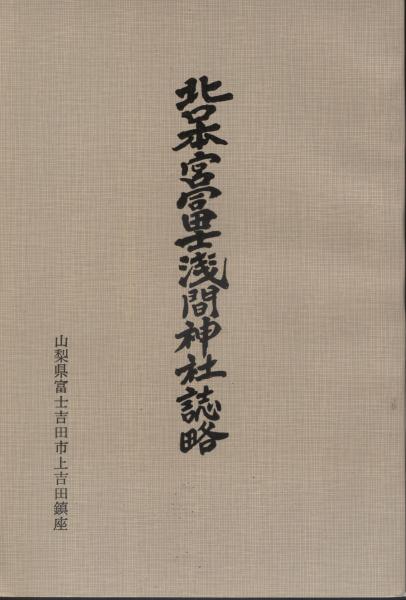 北口本宮冨士浅間神社誌略
山梨県富士吉田市上吉田鎮座